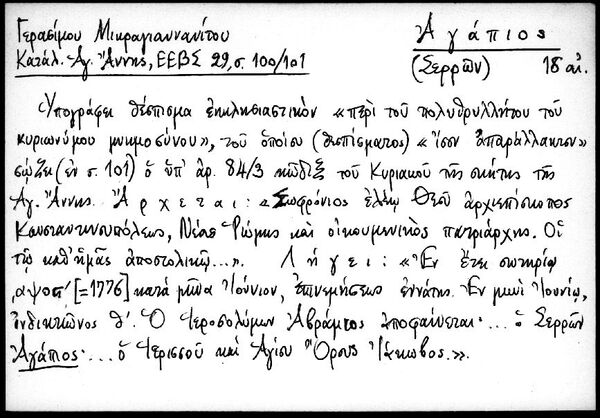 Γερασίμου Μικραγιαννανίτου
Κατάλ. Ἁγ. Ἄννης, ΕΕΒΣ 29, σ. 100/101
Ἀγάπιος
(Σερρῶν) 18 αἰ.
Ὑπογράφει θέσπισμα ἐκκλησιαστικὸν «περὶ τοῦ πολυθρυλλήτου τοῦ
κυριωνύμου μνημοσύνου», τοῦ ὁποίου (θεσπίσματος) «ἴσον ἀπαράλλακτον»
σῴζει (ἐν σ. 101) ὁ ὑπ' ἀρ. 84/3 κῶδιξ τοῦ Κυριακοῦ τῆς σκήτης τῆς
Ἁγ. Ἄννης. Ἄρχεται: «Σωφρόνιος ἐλέῳ Θεοῦ ἀρχιεπίσκοπος
Κωνσταντινουπόλεως, Νέας Ῥώμης καὶ οἰκουμενικὸς πατριάρχης. Οἱ
τῷ καθ' ἡμᾶς ἀποστολικῷ...». Λήγει: «Ἐν ἔτει σωτηρίῳ
͵αψοϛ' [=1776] κατὰ μῆνα Ἰούνιον, ἐπινεμήσεως ἐννάτης. Ἐν μηνὶ Ἰουνίῳ,
ἰνδικτιῶνος θ'. Ὁ Ἱεροσολύμων Ἀβράμιος ἀποφαίνεται ... ὁ Σερρῶν
Ἀγάπιος ... ὁ Ἱερισσοῦ καὶ Ἁγίου Ὄρους Ἰάκωβος.».